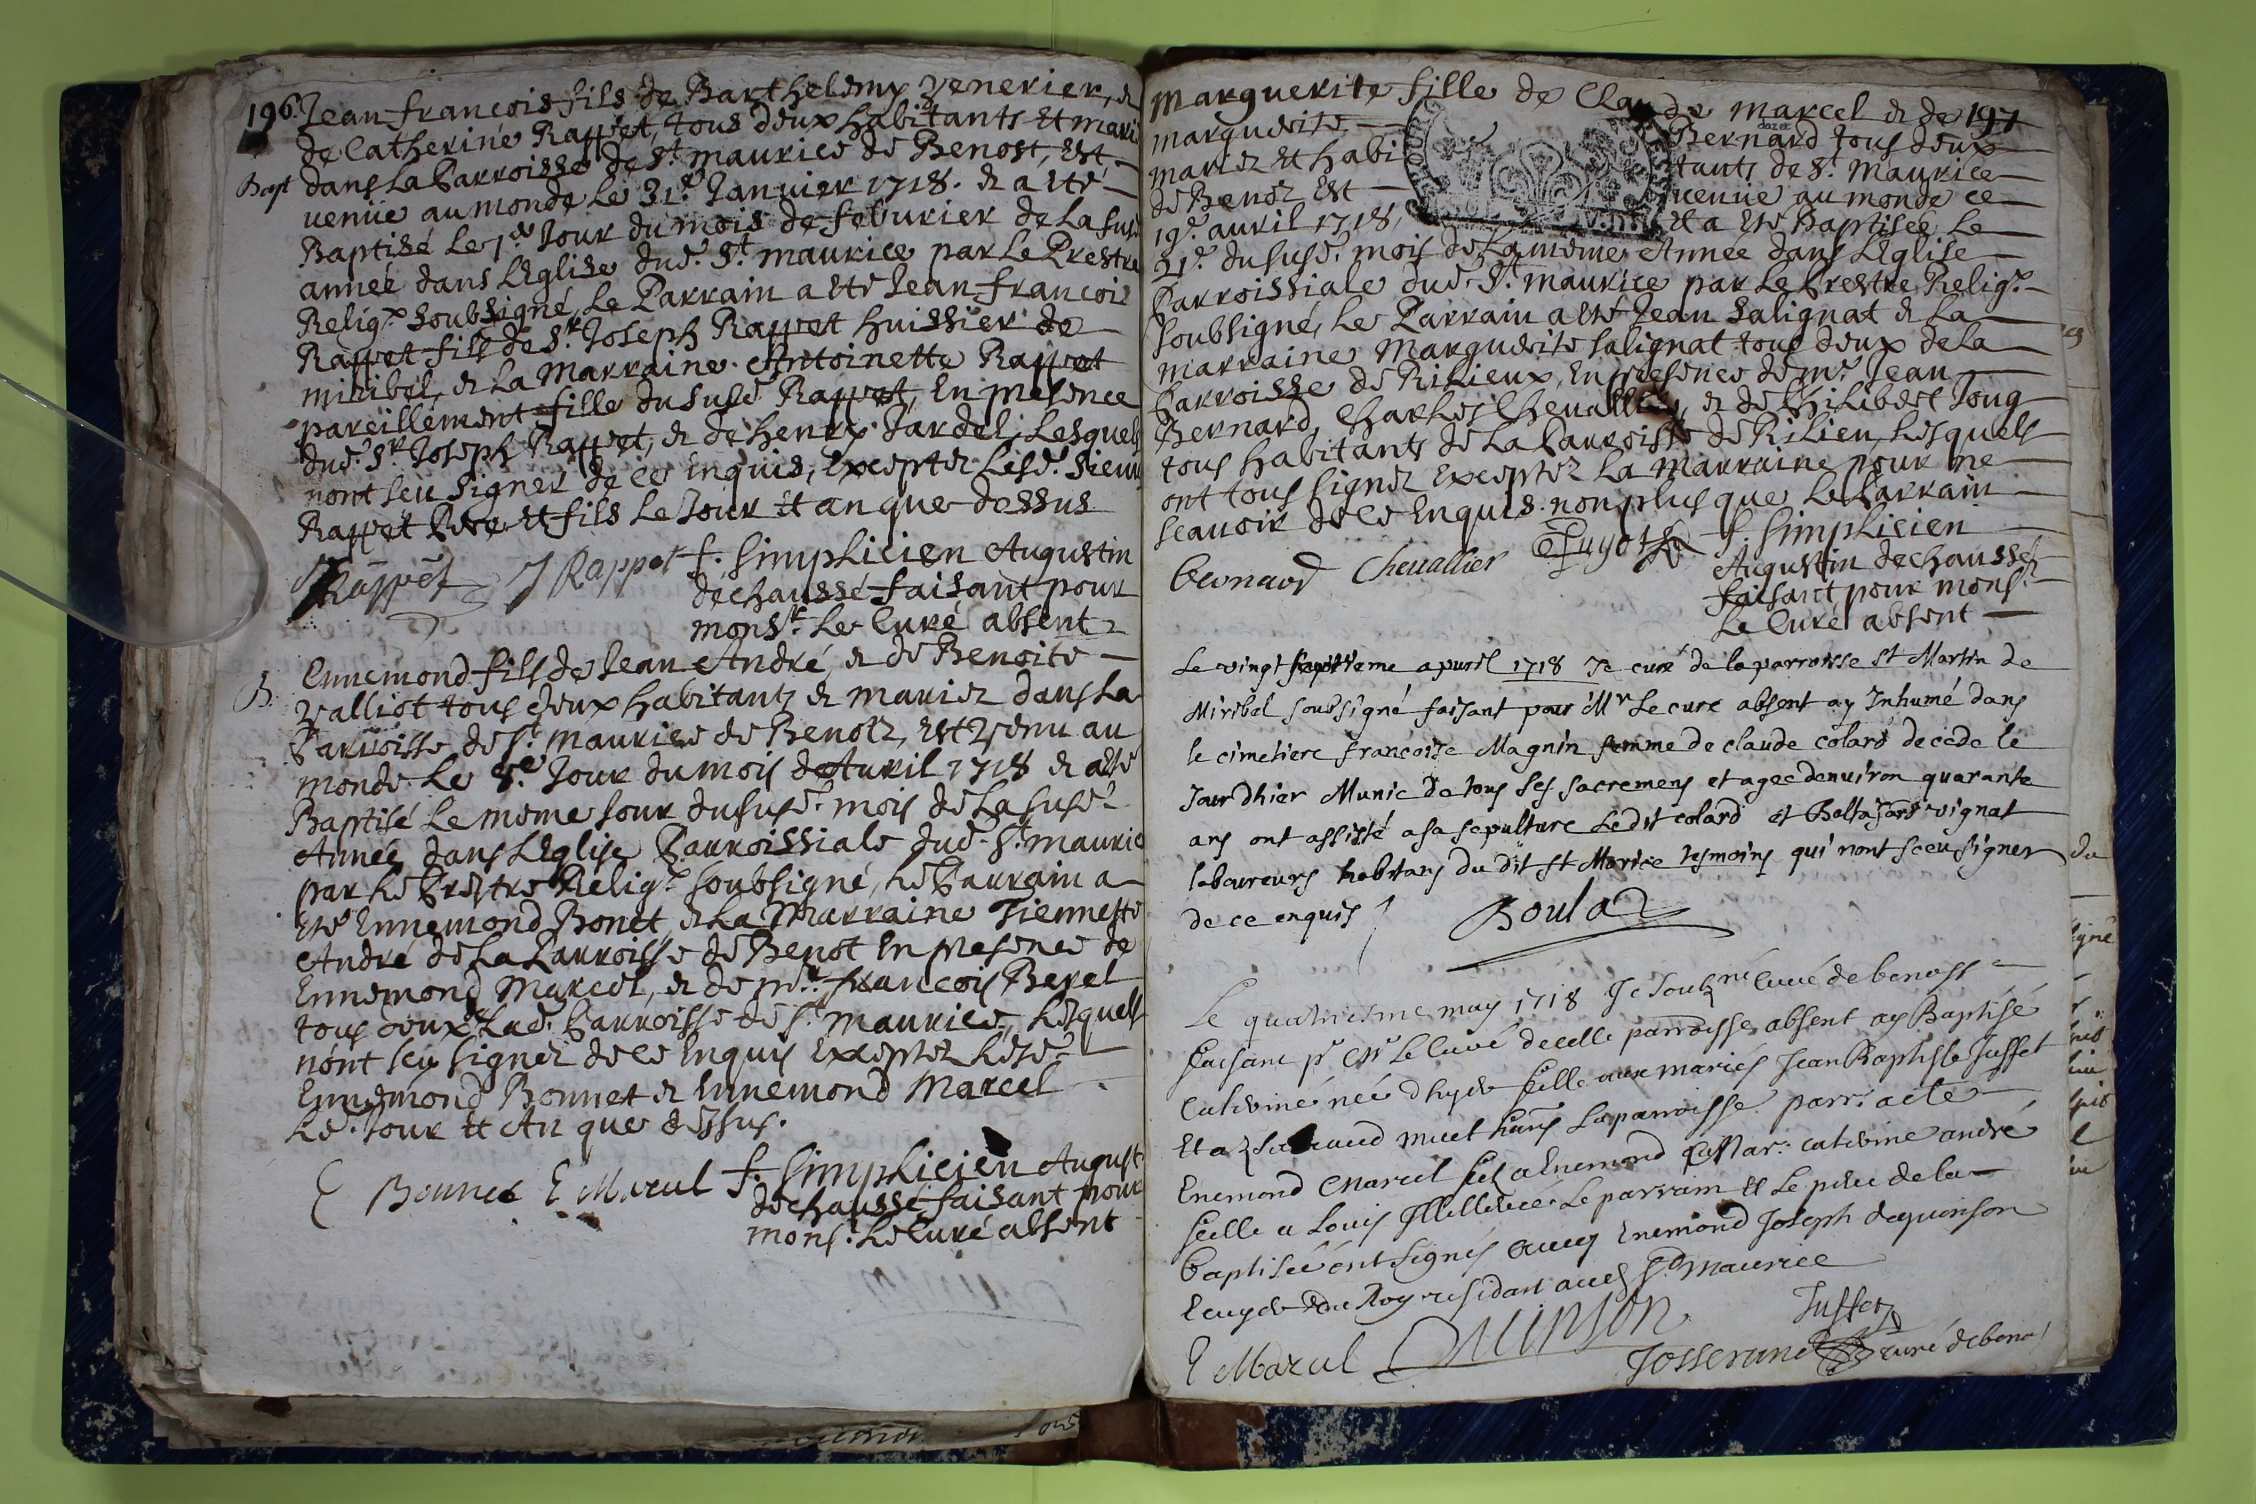 196. Jean françois fils de Barthelemy Venerier, &
de Catherine Rappet, tous deux habitants et marié
Bapt dans la Parroisse de St. maurice de Benost, Est
venüe au monde le 31e. Janvier 1718. & a eté
Baptisé le 1er Jour du mois de febvrier de la sus
année dans l'Eglise dud. St. maurice par le Prestre
Relig.x soubsigné, Le Parrain a eté Jean françois
Rappet fils de Sr. Joseph Rappet huissier de
miribel, & la Marraine Antoinette Rappet
pareillement fille du susd. Rappet, En presence
dud. Sr. Joseph Rappet, & de henry Jardel, Lesquels
nont sçu signer de ce Enquis, Exceptez Lesd. Sieur
Rappet Pere et fils le Jour et an que dessus
Rappet J Rappet f. Simplicien Augustin
déchaussé faisant pour
monsr. Le Curé absent
B. Ennemond fils de Jean André, & de Benoite
Valliot tous deux habitants & mariez dans La
Parroisse de St. Maurice de Benost, Est Venu au
monde Le 8e. Jour du mois d'Avril 1718 & a eté
Baptisé le meme Jour du susd. mois de la susd.
Année dans l'Eglise Parroissiale dud. St. maurice
par le Prestre Relig.x soubsigné, Le Parrain a
eté Ennemond Bonet, & La Marraine Tiennette
André de La Parroisse de Benost En presence de
Ennemond Marcel, & de mr. françois Berel
tous deux Lad. Parroisse de St. Maurice, Lesquels
nont sçu signer de ce Enquis Exceptez Lesd.
Ennemond Bonnet & Ennemond Marcel
Led. Jour et An que dessus.
E Bonnet E Marcel f. Simplicien August
déchaussé faisant pour
mons. Le Curé absent
Marguerite fille de Claude Marcel & de 197
marguerite Bernard tous deux
mariez et habitants de St. Maurice
de Benoz Est venüe au monde ce
19e. avril 1718, et a eté Baptisée Le
21e. du susd. mois de La meme Année dans L'Eglise
Parroissiale dud. St. maurice par Le Prestre Relig.x
soubsigné, Le Parrain a eté Jean Salignat & La
marraine Marguerite Salignat tous deux de La
Parroisse de Rilieux, En presence de mr. Jean
Bernard, Charles Chevallier, & de Philibert Joug
tous habitants de La Parroisse de Rilieu, Lesquels
ont tous signez Exceptez La Marraine pour ne
scavoir de ce Enquis. non plus que Le Parrain
Bernard Chevallier f. Simplicien
Augustin déchaussé
faisant pour monsr.
Le Curé absent
Le vingt septieme apvril 1718 Je curé de la parroisse St Martin de
Miribel soubsigné faisant pour Mr Le curé absent ay Inhumé dans
le cimetiere francoise Magnin femme de claude colard decede le
Jour dhier Munie de tous ses sacremens et agee denviron quarante
ans ont assisté a sa sepulture Ledit colard et Baltasard vignat
laboureurs habitans du dit St Morice tesmoins qui nont sceu signer
de ce enquis
Boulaz
Le quatriesme may 1718 Je soubzné curé de benost
faisant pr Mr Le Curé de celle parroisse absent ay Baptisé
Catherine née dhyer fille aux mariés Jean Baptiste Jusset
Et a
Enemond Marcel fils a Enemond Mar. catherine andré
fille a Louis Le parrain et Le pere de la
baptisée ont signés avec Enemond Joseph dequinson
Ecuyer du Roy residant aud St maurice
E Marcel Quinson Jusset
Josserand curé de benost